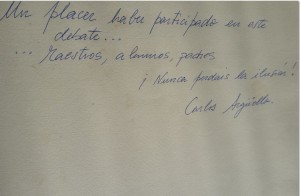 Un placer haber participado en este
debate...
... Maestros, alumnos, padres
¡Nunca perdais la ilusión!
Carlos Argüello.